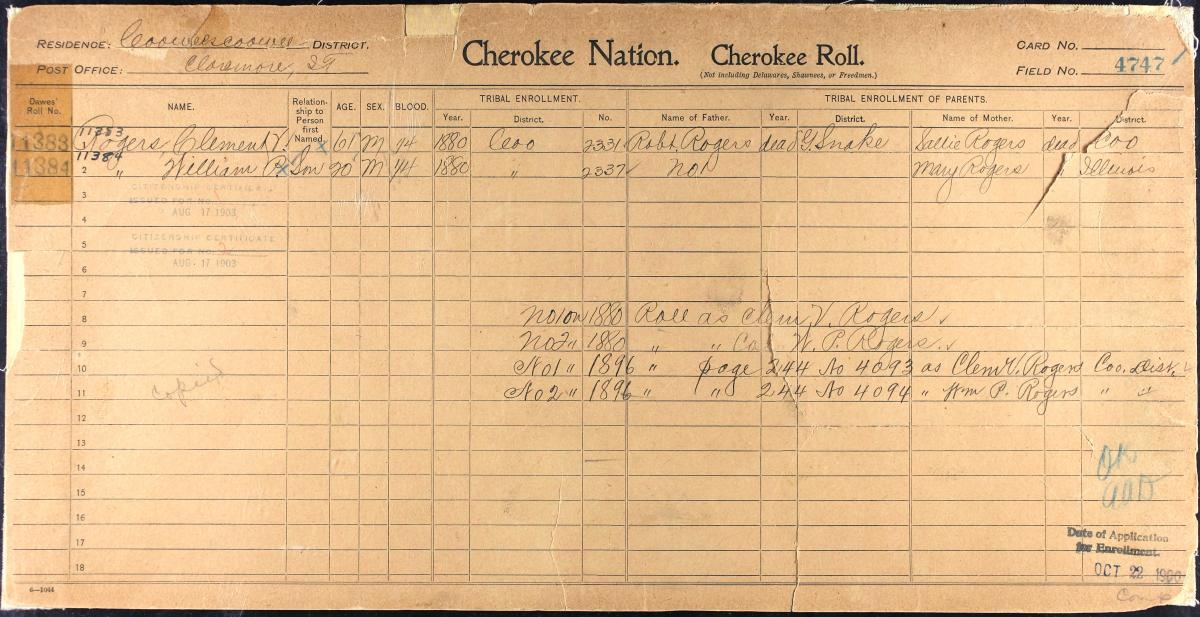 RESIDENCE: Coowescoowee DISTRICT.
POST OFFICE: Claremore, IT
Cherokee Nation. Cherokee Roll.
(Not including Delawares, Shawnees, or Freedmen.)
CARD NO.
FIELD NO. 4747
Dawes' Roll No.
NAME.
Relationship to Person first Named.
AGE.
SEX.
BLOOD.
TRIBAL ENROLLMENT.
Year. District. No.
TRIBAL ENROLLMENT OF PARENTS.
Name of Father. Year. District. Name of Mother. Year. District.
11383
11383 Rogers, Clement V. 61 M 1/4 1880 Coo 2331 Robt. Rogers dead G. Snake Sallie Rogers dead Coo
11384
11384 2 " William P. Son 20 M 1/4 1880 " 2337 No 1 Mary Rogers " Illinois
CITIZENSHIP CERTIFICATE
3
ISSUED FOR NO.
AUG 17 1903
4
CITIZENSHIP CERTIFICATE
5
ISSUED FOR NO. 2
AUG. 17 1903
6
7
8 No 1 on 1880 Roll as Clem V. Rogers
9 No 2 " 1880 " " W. P. Rogers
10 No 1 " 1896 " page 244 No 4093 as Clem V. Rogers Coo. Dist.
copied
11 No 2 " 1896 " " 244 No 4094 " Wm P. Rogers " "
12
13
14
15
16
17
18
OK
Date of Application
for Enrollment.
OCT 22 1900
6—1044